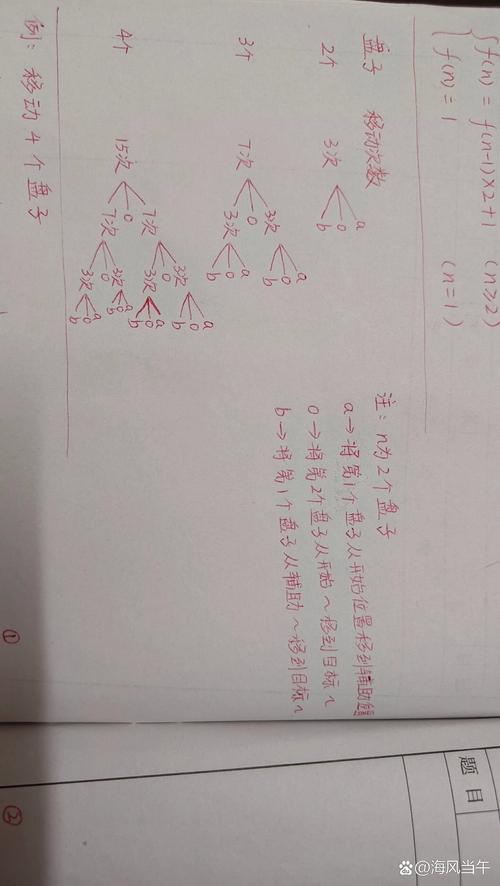 f(n) = f(n-1)×2+1 (n≥2)
f(n) = 1 (n=1)
盘子 移动次数
2个 3次 a o b
3个 7次 o 3次 a o b 3次 a o b
4个 15次 o 7次 o 3次 a o b 3次 a o b 7次 o 3次 a o b 3次 a o b
注: n为2个盘子
a→将第1个盘子从开始位置移到辅助位置
o→将第2个盘子从开始~移到目标~
b→将第1个盘子从辅助~移到目标~
例: 移动4个盘子
①
②
题目
@海风当午